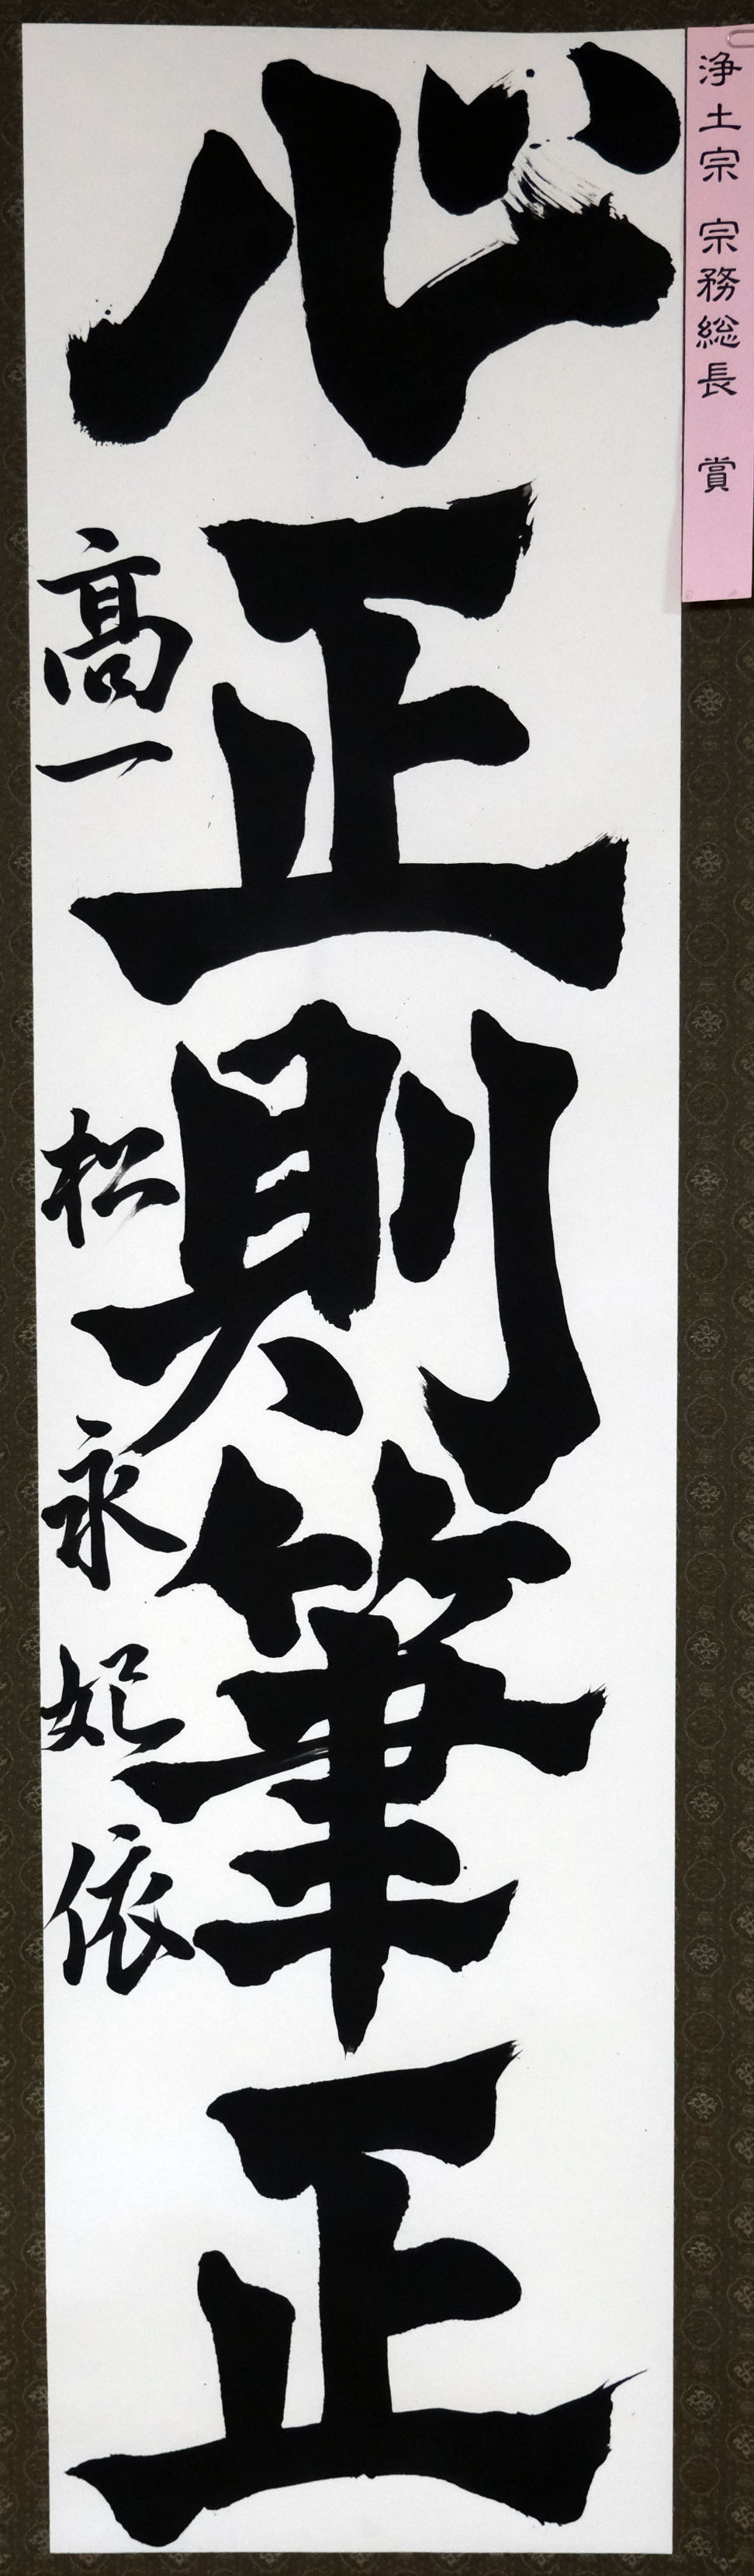 浄土宗 宗務総長 賞
心正則筆正
高一 松永妃依